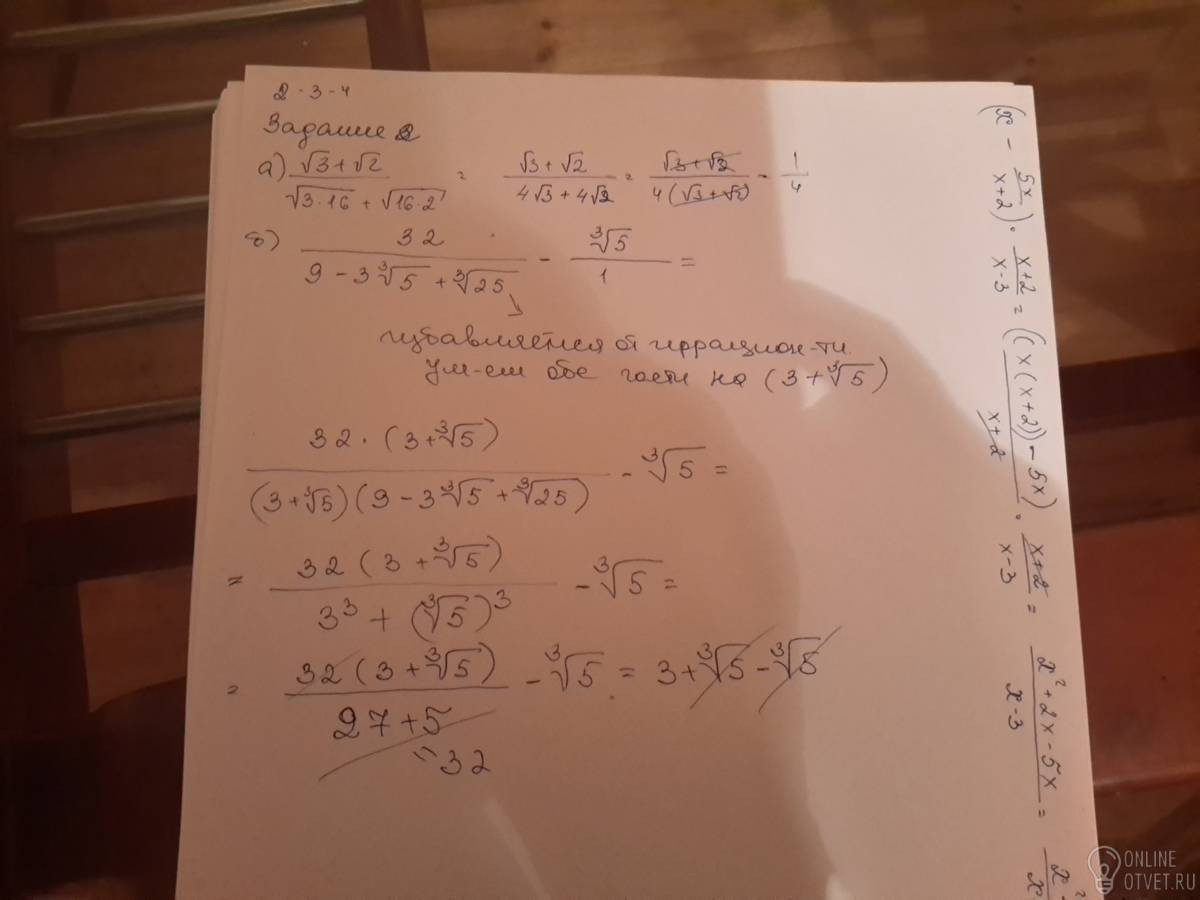 2 - 3 - 4
Задание 2
а) (√3 + √2)/(√3·16 + √16·2) = (√3 + √2)/(4√3 + 4√2) = (√3 + √2)/(4(√3 + √2)) = 1/4
б) 32/(9 - 3∛5 + ∛25) - ∛5/1 =
избавляемся от иррацион-ти.
Ум-ем обе части на (3 + ∛5)
32·(3 + ∛5)/((3 + ∛5)(9 - 3∛5 + ∛25)) - ∛5 =
= 32(3 + ∛5)/(3³ + (∛5)³) - ∛5 =
= 32(3 + ∛5)/(27 + 5) - ∛5 = 3 + ∛5 - ∛5
= 32
(x - 5x/(x+2)) · (x+2)/(x-3) = (x(x+2) - 5x)/(x+2) · (x+2)/(x-3) = (x² + 2x - 5x)/(x-3) =
ONLINE
OTVET.RU